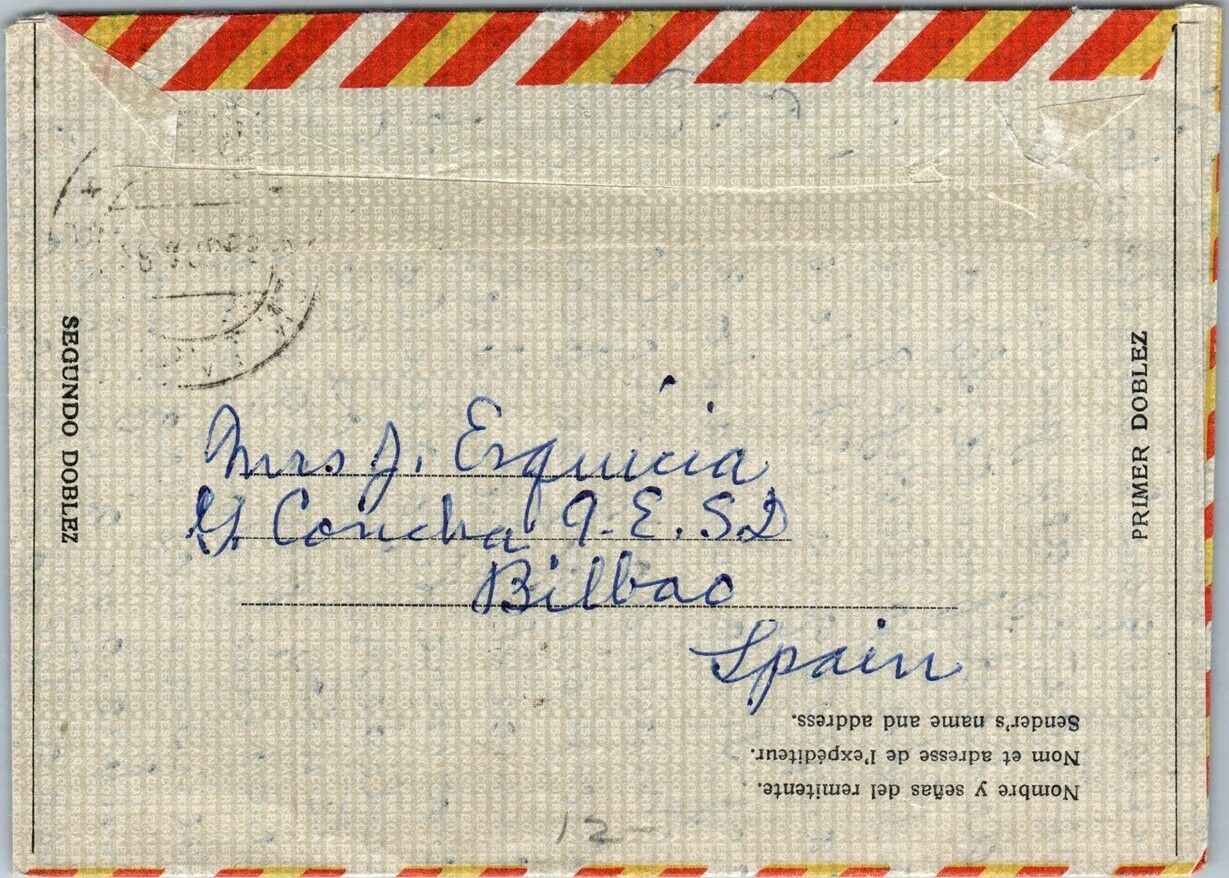 SEGUNDO DOBLEZ
PRIMER DOBLEZ
Mrs J. Esquicia
G. Concha 9-E.S2
Bilbao
Spain
Nombre y señas del remitente.
Nom et adresse de l'expéditeur.
Sender's name and address.
12-